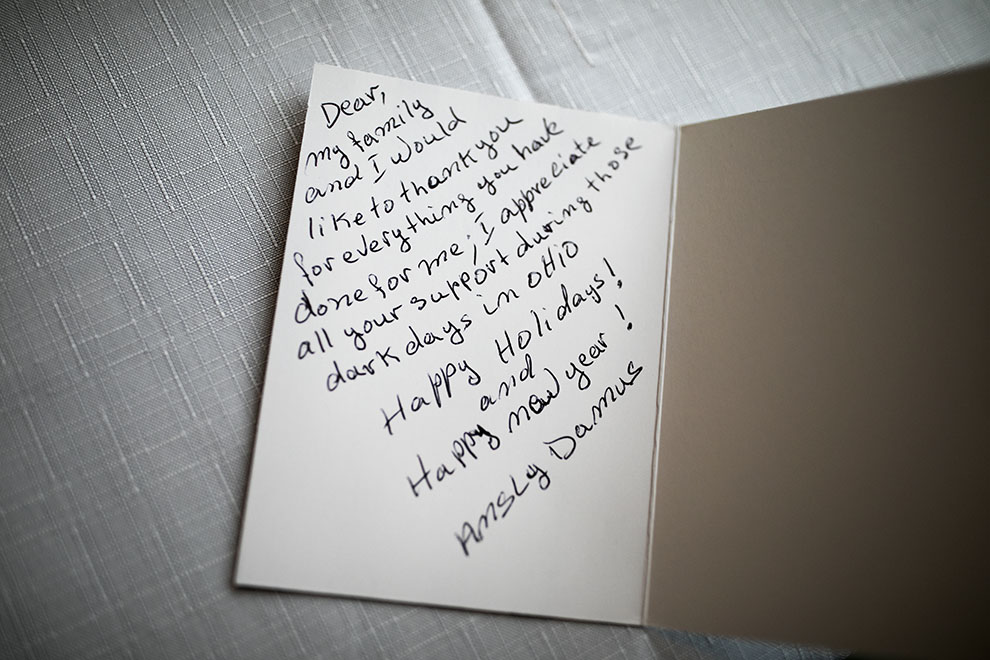 Dear,
my family
and I would
like to thank you
for everything you have
done for me; I appreciate
all your support during those
dark days in OHIO
Happy Holidays!
and
Happy new year!
Ansly Damus